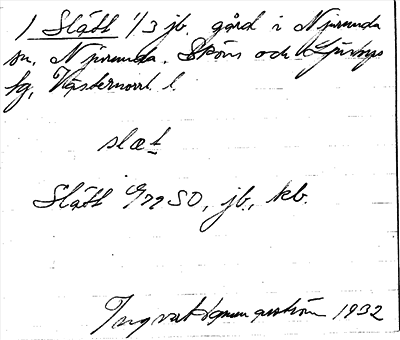 1 Slätt 1/3 jb. gård i Njurunda
sn, Njurunda, Sköns och Ljustorps
tg, Västernorrl. l.
slæt
Slätt 6/72 SO, jb., kb.
Ingvar 1932